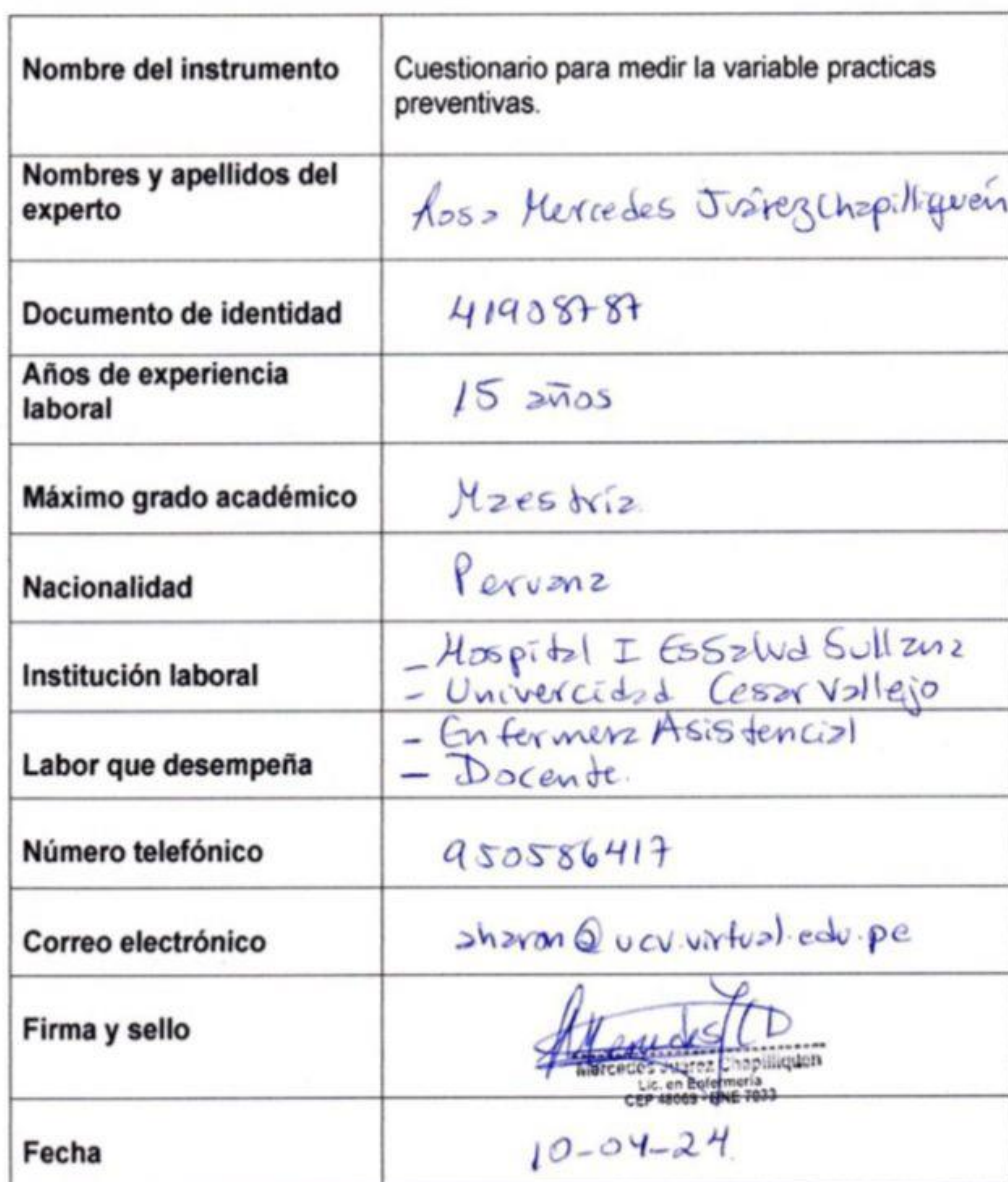 Nombre del instrumento
Cuestionario para medir la variable practicas
preventivas.
Nombres y apellidos del
experto
Rosa Mercedes Juárez Chapilliquén
Documento de identidad
41908787
Años de experiencia
laboral
15 años
Máximo grado académico
Maestría
Nacionalidad
Peruana
Institución laboral
- Hospital I EsSalud Sullana
- Univercidad Cesar Vallejo
Labor que desempeña
- Enfermera Asistencial
- Docente.
Número telefónico
950586417
Correo electrónico
aharon@ucv.virtual.edu.pe
Firma y sello
Mercedes Juarez Chapilliquen
Lic. en Enfermería
CEP 48069 - RNE 7033
Fecha
10-04-24